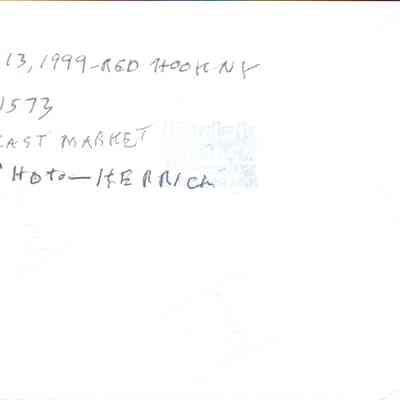 13, 1999-RED HOOK-NY
1573
EAST MARKET
PHOTO-HERRICK